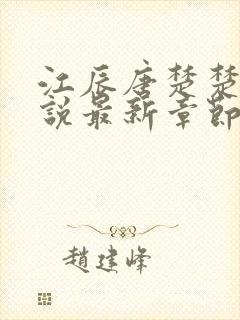 江辰唐楚楚
説最新章節
趙建峰